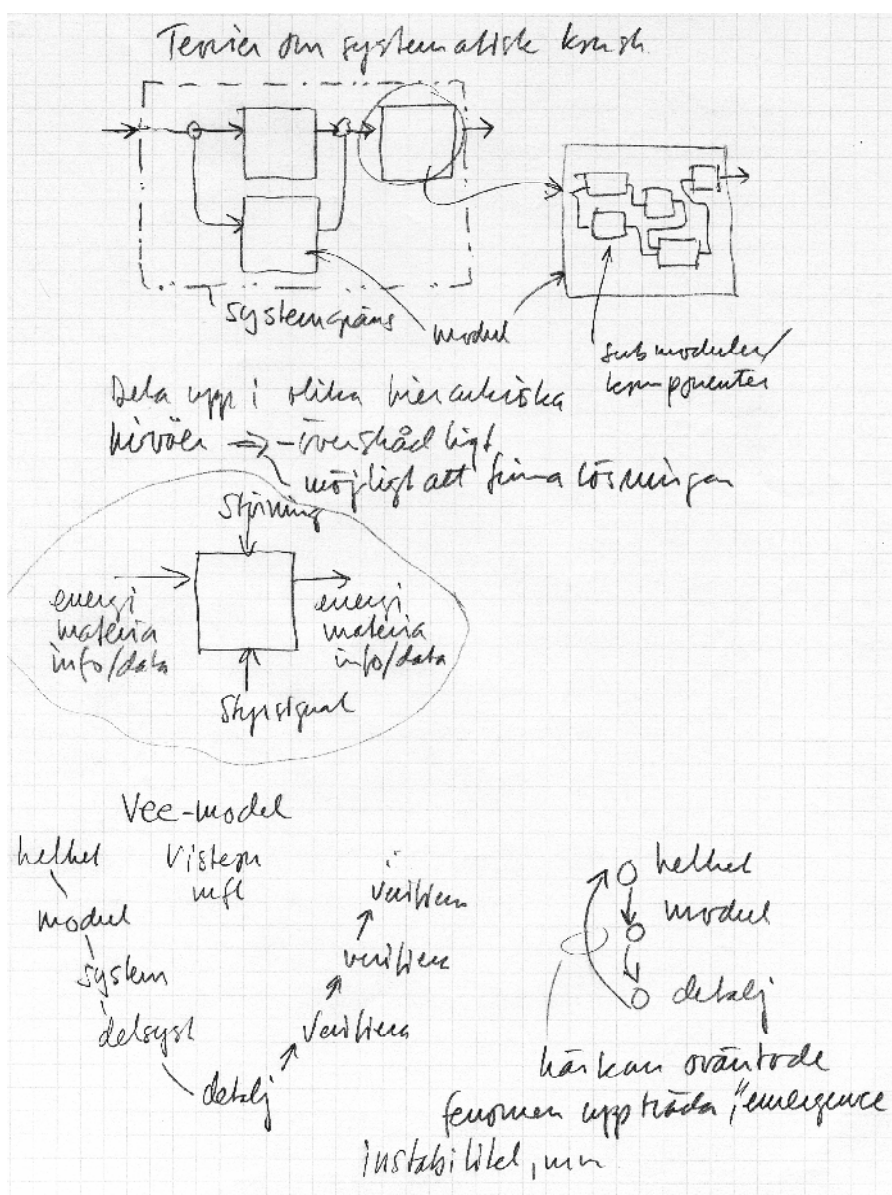 Teorier om systematisk konstr
systemgräns
modul
submoduler/
komponenter
Dela upp i olika hierarkiska
nivåer ⇒ - överskådligt
- möjligt att finna lösningar
Störning
energi
materia
info/data
energi
materia
info/data
Styrsignal
Vee-model
helhet
modul
system
delsyst
detalj
verifiera
verifiera
verifiera
mfl
helhet
modul
detalj
här kan oväntade
fenomen uppträda, "emergence
instabilitet, mm